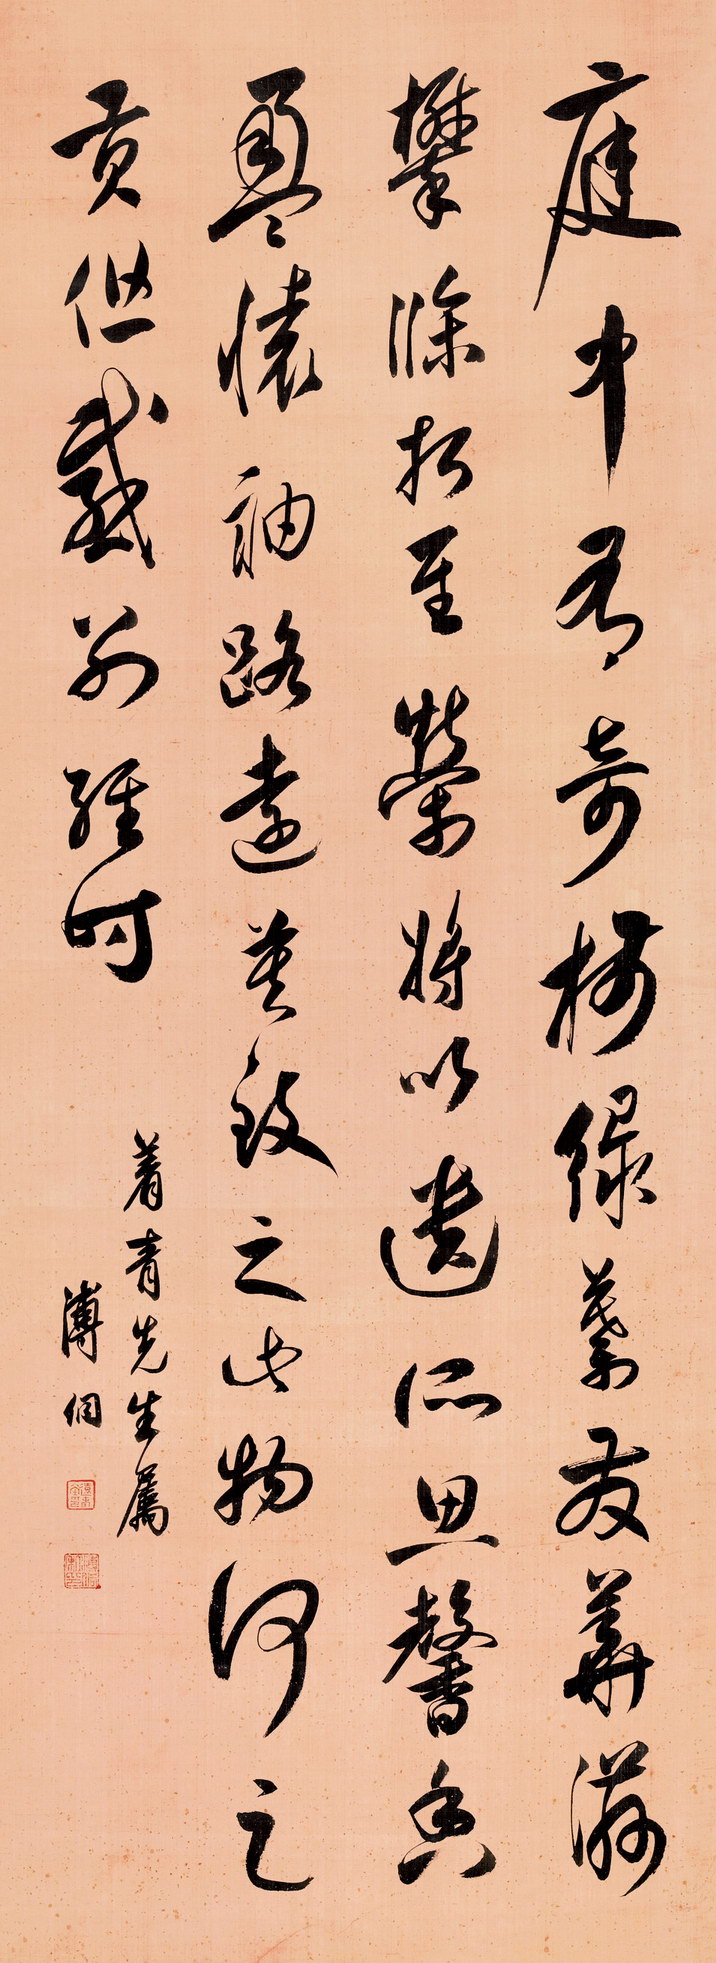 庭中有奇樹綠葉發華滋
攀條折至榮將以遺所思馨香
盈懷袖路遠莫致之此物何足
貢但感別經時
着青先生屬
溥侗